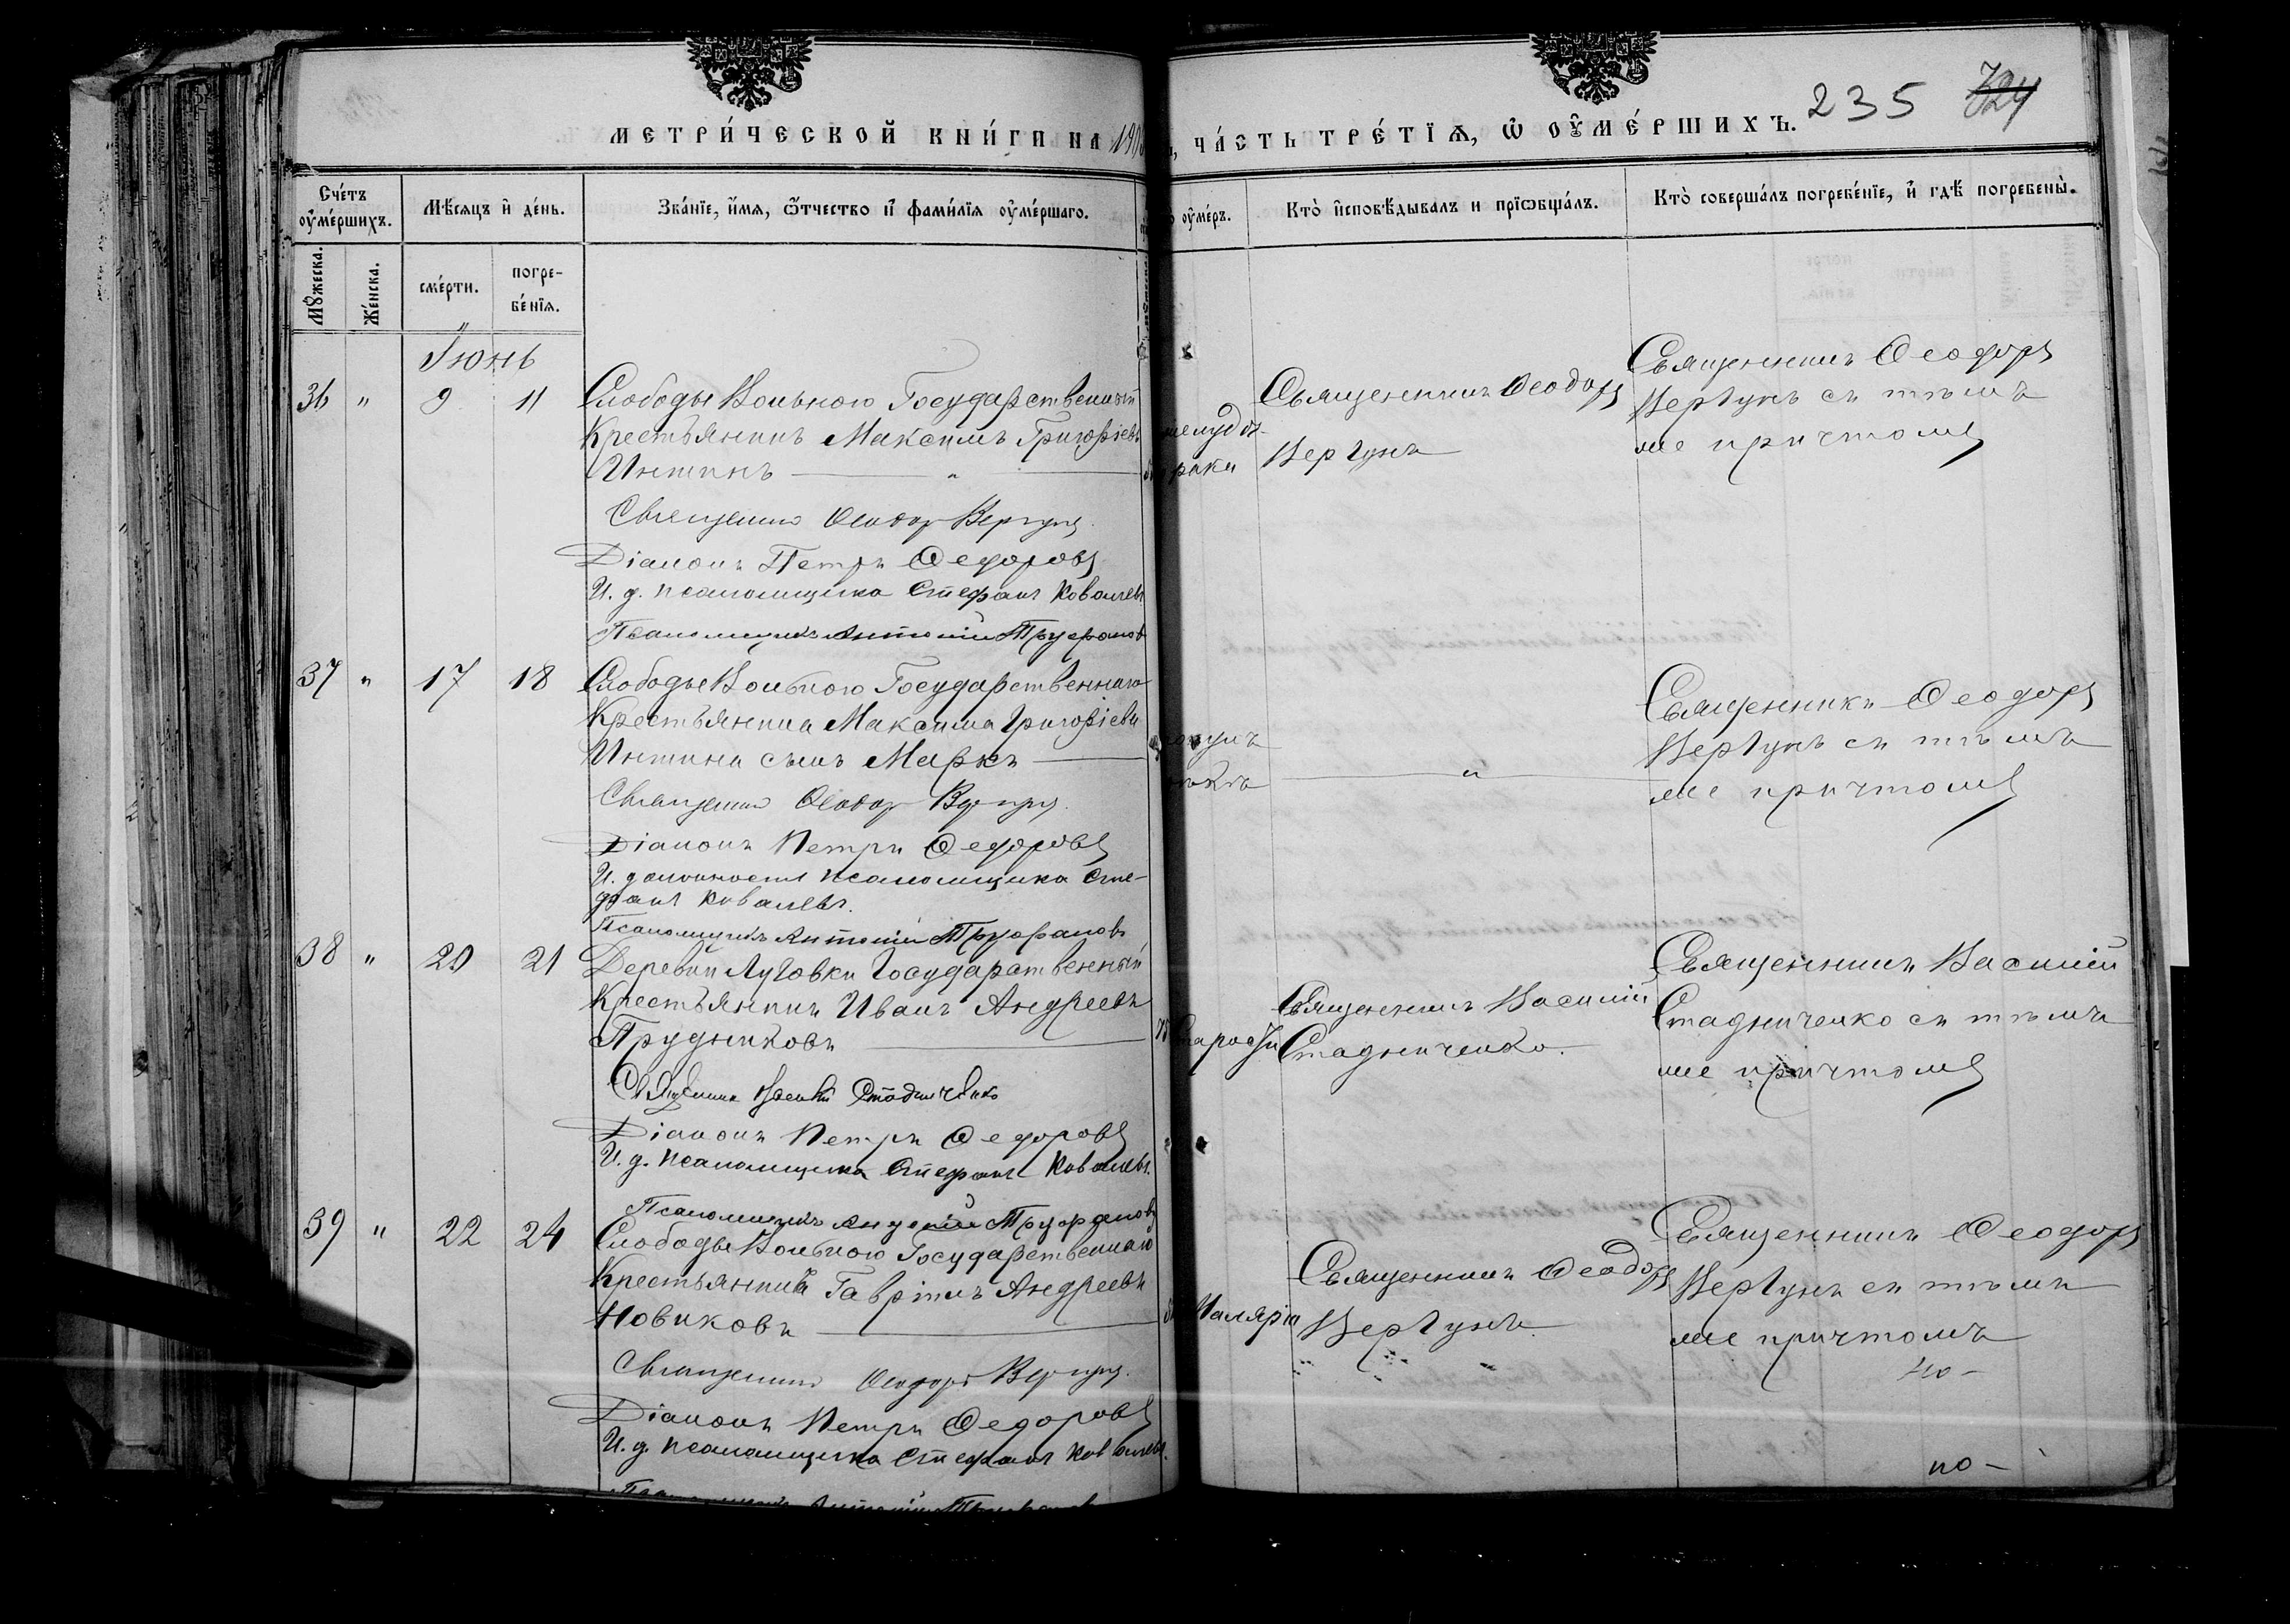 МЕТРИ́ЧЕСКОЙ КНИ́ГИ НА 190
ЧА́СТЬ ТРЕ́ТЇѦ, Ѡ҆ ОУ҆МЕ́РШИХЪ.
235 724
Сче́тъ оу҆ме́ршихъ.
Мѣ́сяцъ и҆ де́нь.
Зва́нїе, и҆́мя, ѻ҆́тчество и҆ фами́лїя оу҆ме́ршаго.
оу҆ме́ръ.
Кто̀ и҆сповѣ́дывалъ и прїѡбща́лъ.
Кто̀ соверша́лъ погребе́нїе, и҆ гдѣ̀ погребены̀.
Мꙋ́жеска.
Же́нска.
сме́рти.
погре-
бе́нїя.
Іюнь
36 " 9 11
Слободы Вольного Государственный
Крестьянинъ Максимъ Григорьевъ
Интинъ
Священникъ Ѳеодоръ Вергунъ
Діаконъ Петръ Ѳедоровъ
И. д. псаломщика Стефанъ Ковалевъ
Псаломщикъ Антоній Труфановъ
раки
Священникъ Ѳеодоръ
Вергунъ
Священникъ Ѳеодоръ
Вергунъ съ тѣмъ
же причтомъ
37 " 17 18
Слободы Вольного Государственнаго
Крестьянина Максима Григорьева
Интина сынъ Маркъ
Священникъ Ѳеодоръ Вергунъ
Діаконъ Петръ Ѳедоровъ
И. должность псаломщика Сте-
фанъ Ковалевъ.
Псаломщикъ Антоній Труфановъ
"
Священникъ Ѳеодоръ
Вергунъ съ тѣмъ
же причтомъ
38 " 20 21
Деревни Луговки Государственный
Крестьянинъ Иванъ Андреевъ
Прудниковъ
Священникъ Василій Стадниченко
Діаконъ Петръ Ѳедоровъ
И. д. псаломщика Стефанъ Ковалевъ.
Псаломщикъ Антоній Труфановъ
Старости
Священникъ Василій
Стадниченко.
Священникъ Василій
Стадниченко съ тѣмъ
же причтомъ
39 " 22 24
Слободы Вольного Государственнаго
Крестьянинъ Гавріилъ Андреевъ
Новиковъ
Священникъ Ѳеодоръ Вергунъ.
Діаконъ Петръ Ѳедоровъ
И. д. псаломщика Стефанъ Ковалевъ.
Псаломщикъ Антоній Труфановъ
Малярія
Священникъ Ѳеодоръ
Вергунъ.
Священникъ Ѳеодоръ
Вергунъ съ тѣмъ
же причтомъ
по-
по-